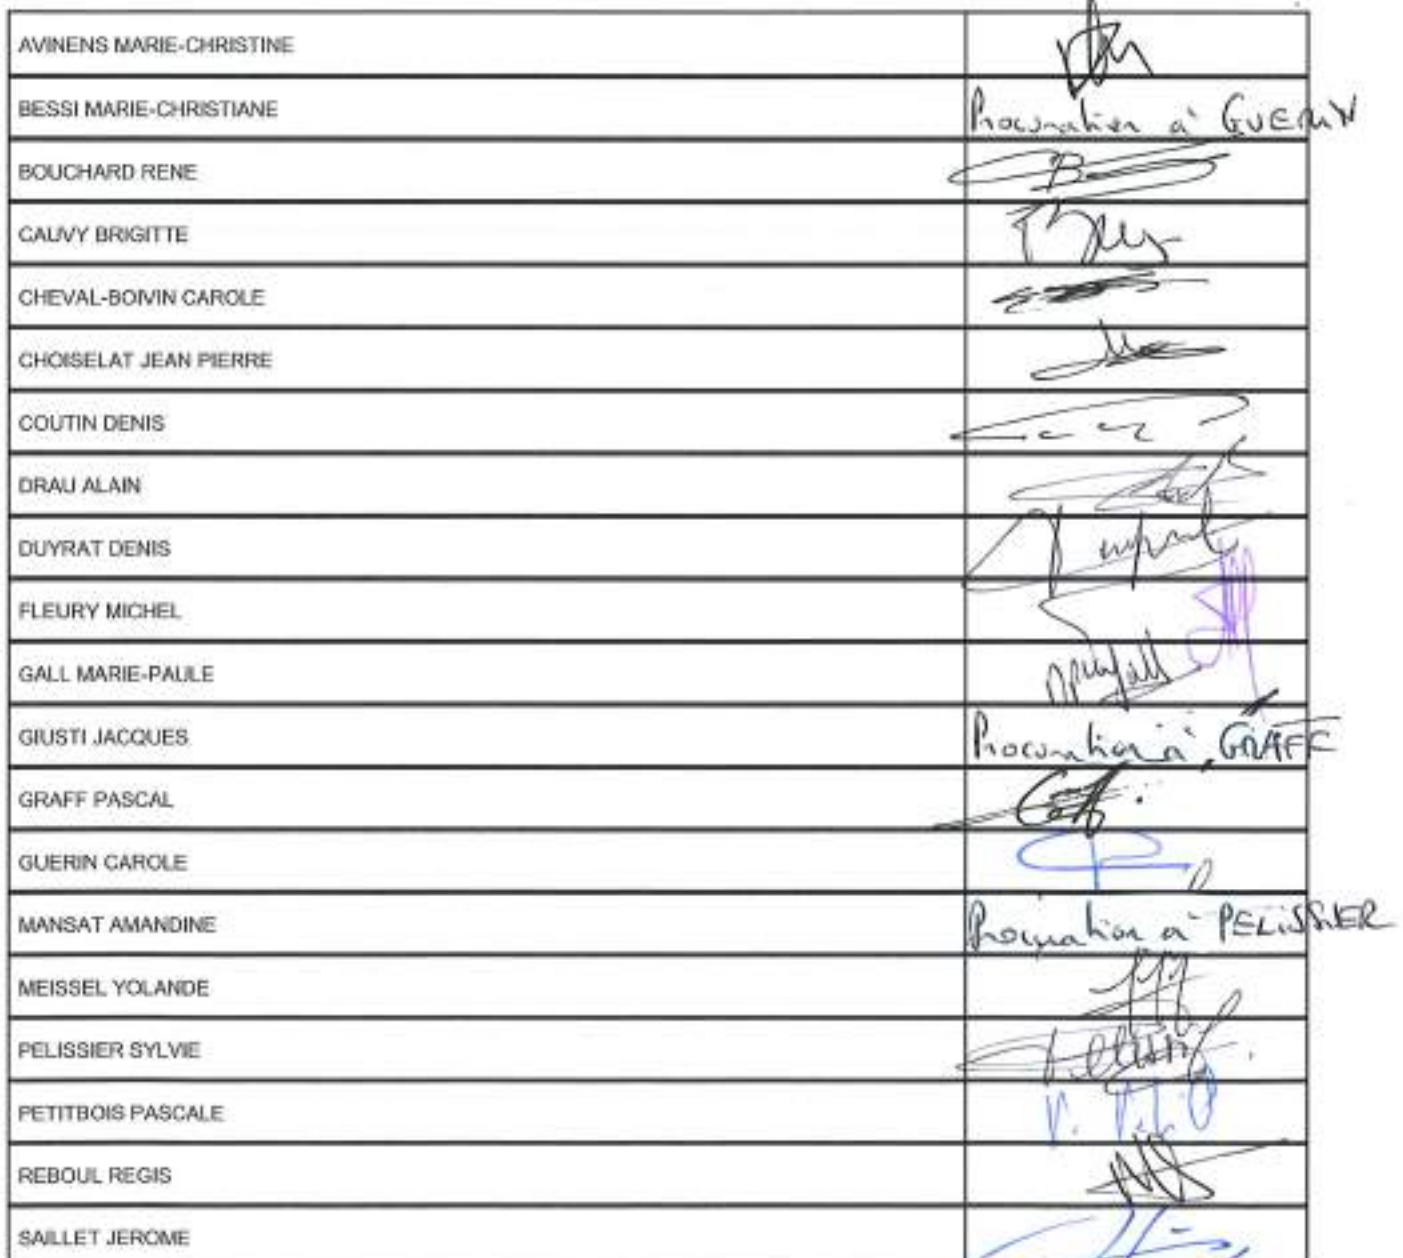 AVINENS MARIE-CHRISTINE
BESSI MARIE-CHRISTIANE Procuration à GUERIN
BOUCHARD RENE
CAUVY BRIGITTE
CHEVAL-BOIVIN CAROLE
CHOISELAT JEAN PIERRE
COUTIN DENIS
DRAU ALAIN
DUYRAT DENIS
FLEURY MICHEL
GALL MARIE-PAULE
GIUSTI JACQUES Procuration à GRAFF
GRAFF PASCAL
GUERIN CAROLE
MANSAT AMANDINE Procuration à PELISSIER
MEISSEL YOLANDE
PELISSIER SYLVIE
PETITBOIS PASCALE
REBOUL REGIS
SAILLET JEROME